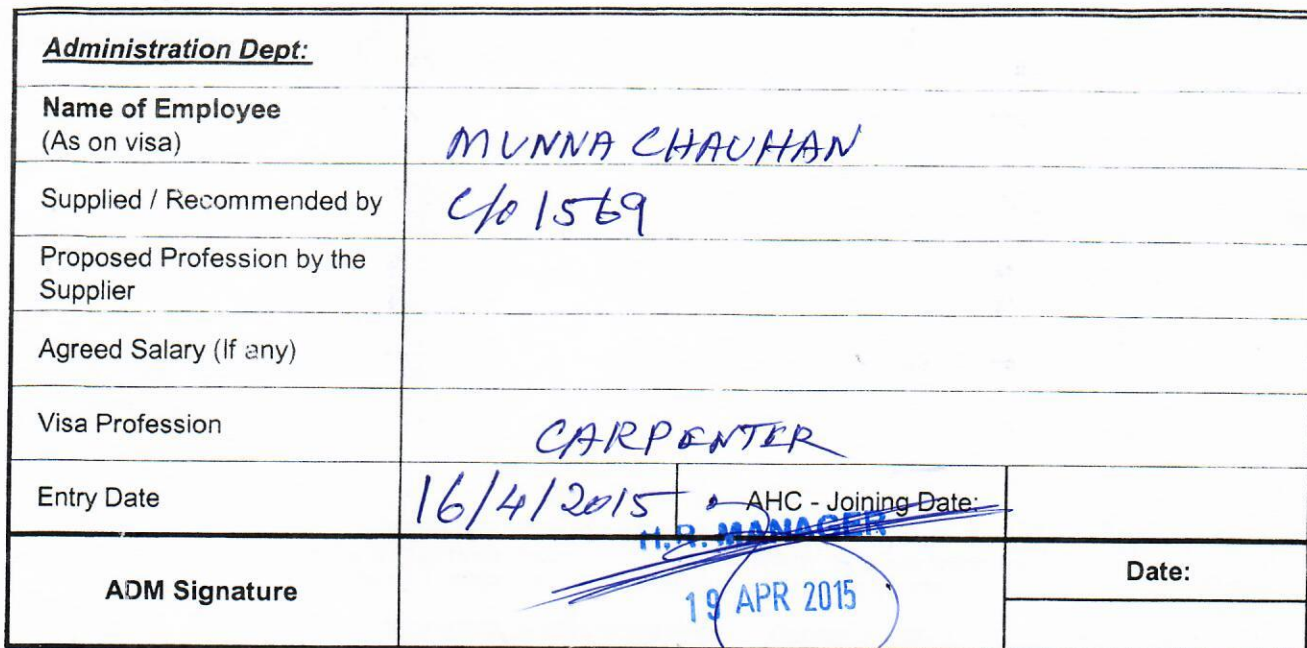 Administration Dept:
Name of Employee
(As on visa)
MUNNA CHAUHAN
Supplied / Recommended by
C/o 1569
Proposed Profession by the
Supplier
Agreed Salary (If any)
Visa Profession
CARPENTER
Entry Date
16/4/2015
AHC - Joining Date:
H.R. MANAGER
ADM Signature
19 APR 2015
Date: